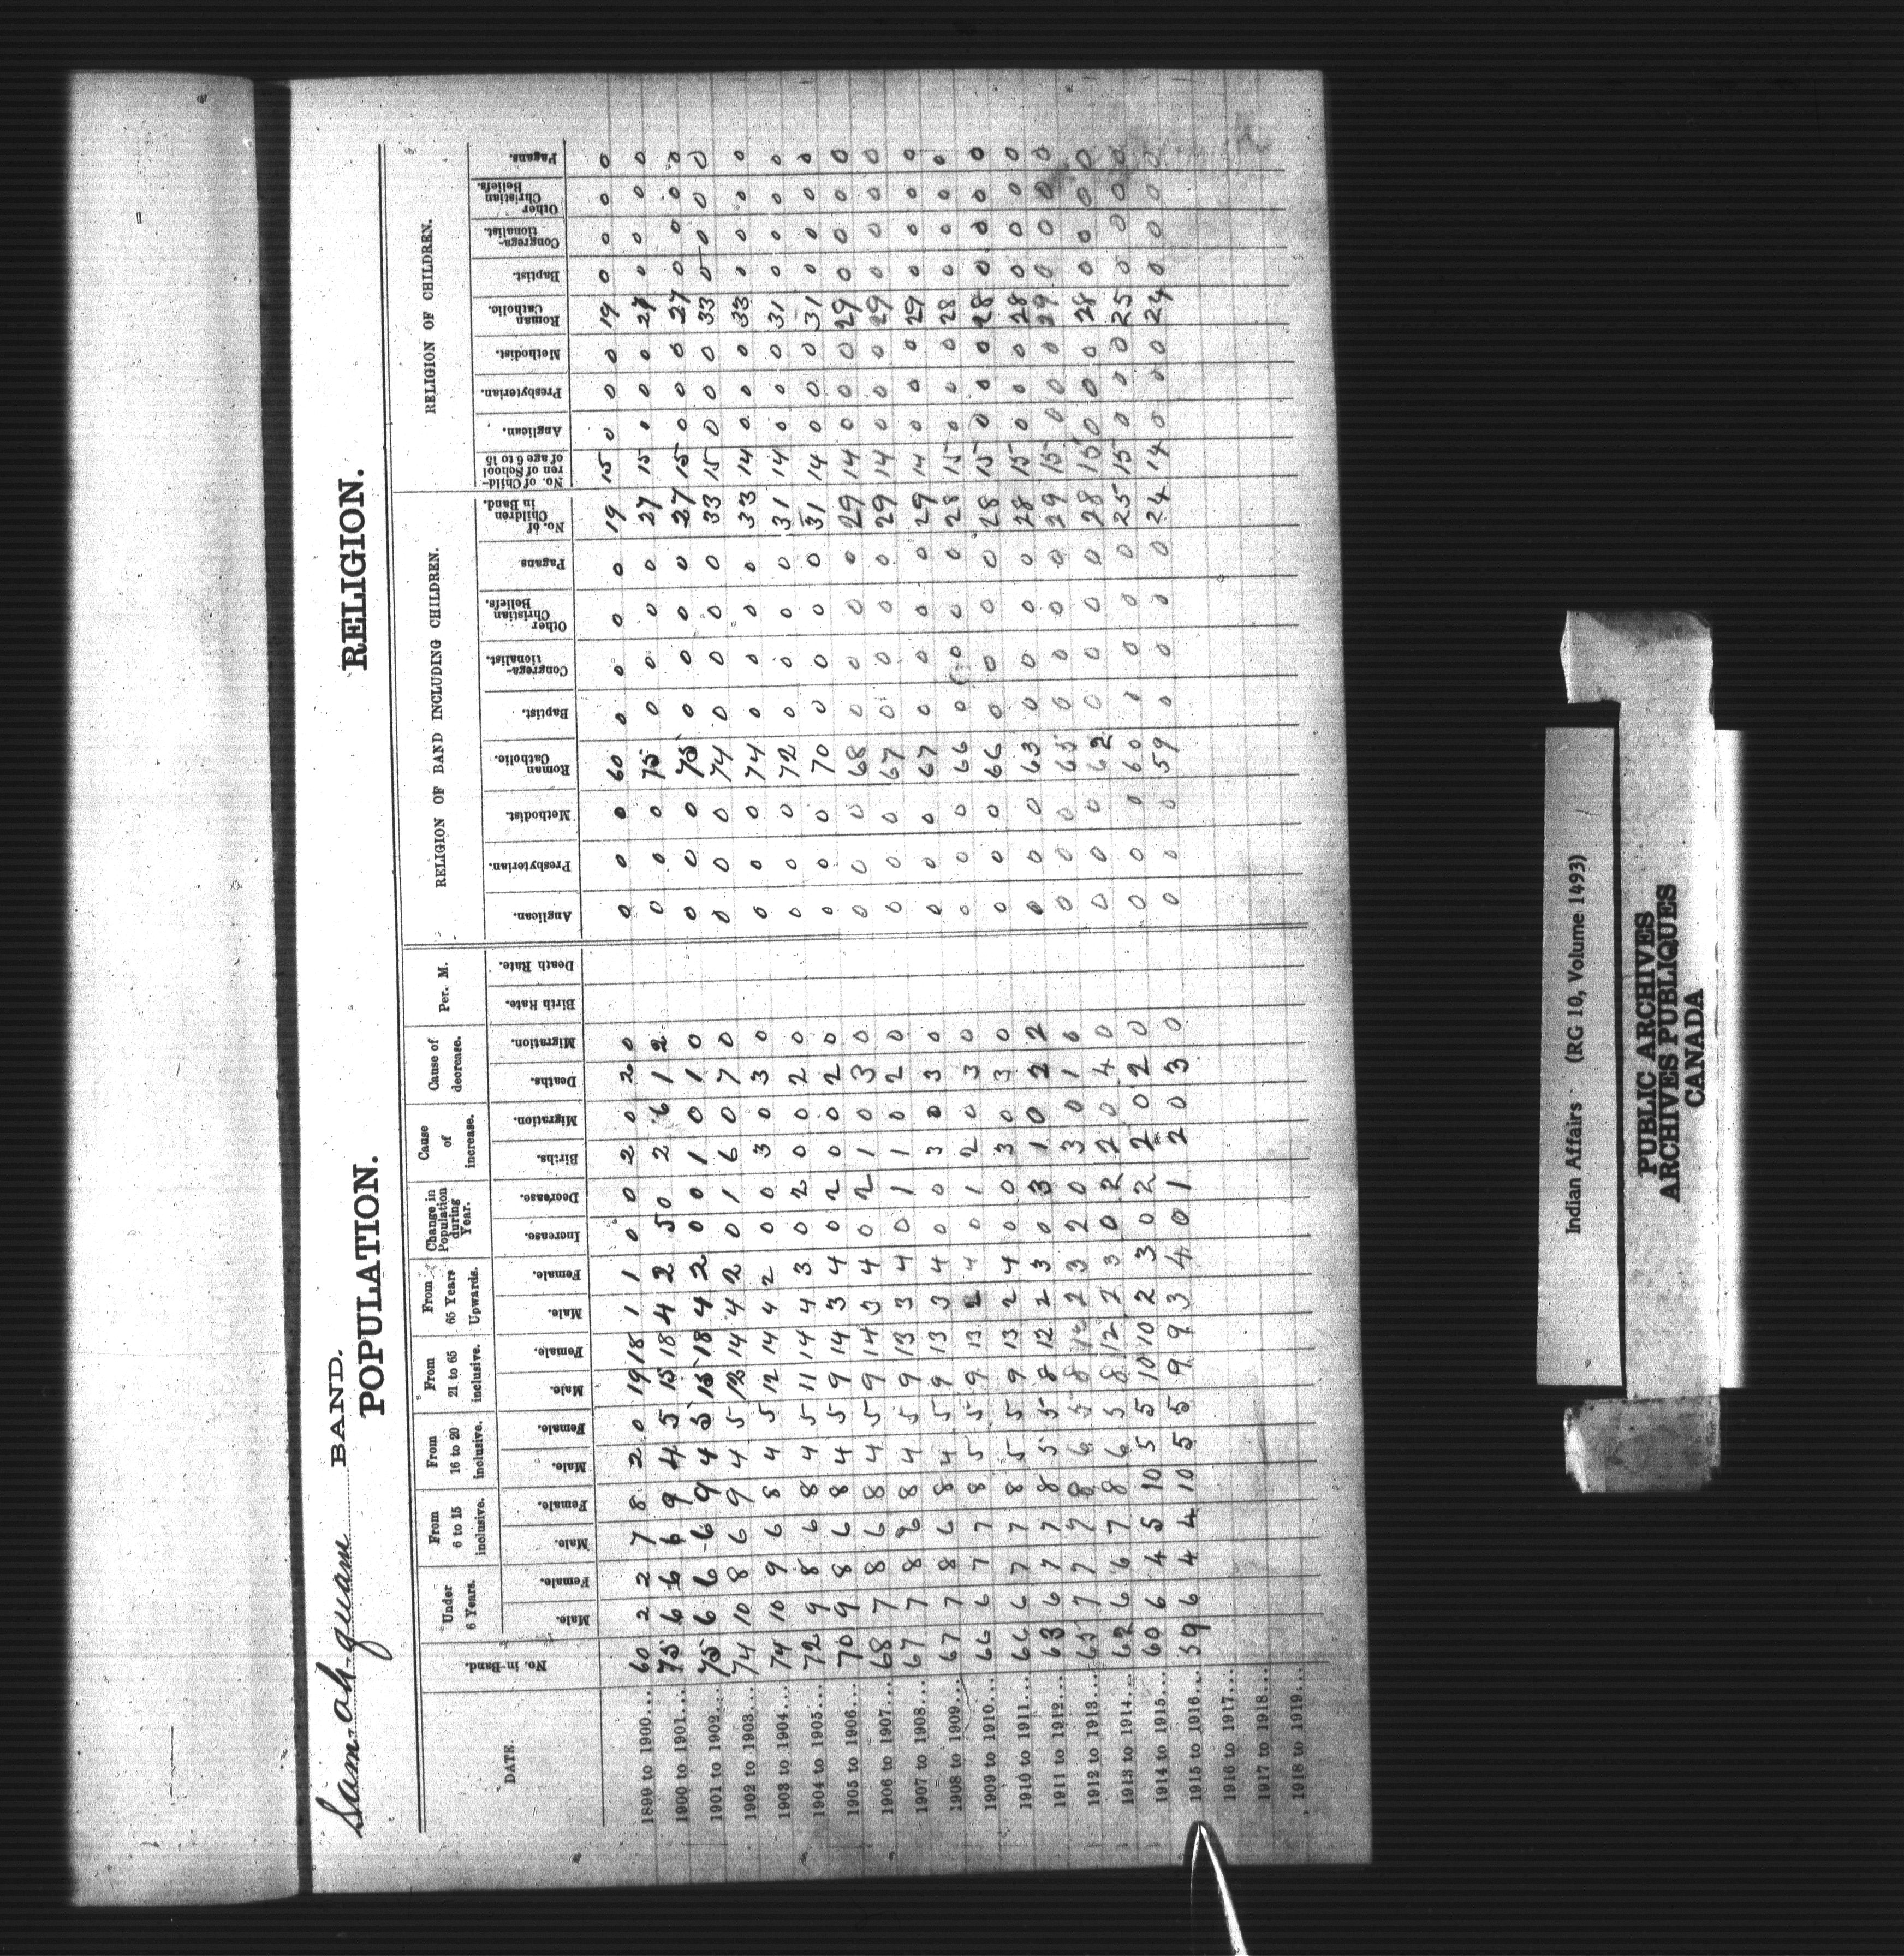 Sam-ah-quam BAND.
POPULATION. RELIGION.
DATE. No. in Band. Under 6 Years. From 6 to 15 inclusive. From 16 to 20 inclusive. From 21 to 65 inclusive. From 65 Years Upwards. Change in Population during Year. Cause of increase. Cause of decrease. Per. M. RELIGION OF BAND INCLUDING CHILDREN. RELIGION OF CHILDREN.
Male. Female. Male. Female. Male. Female. Male. Female. Male. Female. Increase. Decrease. Births. Migration. Deaths. Migration. Birth Rate. Death Rate. Anglican. Presbyterian. Methodist. Roman Catholic. Baptist. Congregationalist. Other Christian Beliefs. Pagans No. of Children in Band. No. of Children of School of age 6 to 15 Anglican. Presbyterian. Methodist. Roman Catholic. Baptist. Congregationalist. Other Christian Beliefs. Pagans.
1899 to 1900... 60 2 2 7 8 2 0 19 18 1 1 0 0 2 0 2 0 0 0 0 60 0 0 0 0 19 15 0 0 0 19 0 0 0 0
1900 to 1901... 75 6 6 6 9 4 5 15 18 4 2 5 0 2 6 1 2 0 0 0 75 0 0 0 0 27 15 0 0 0 27 0 0 0 0
1901 to 1902... 75 6 6 6 9 4 5 15 18 4 2 0 0 1 0 1 0 0 0 0 75 0 0 0 0 27 15 0 0 0 27 0 0 0 0
1902 to 1903... 74 10 8 6 9 4 5 12 14 4 2 0 1 6 0 7 0 0 0 0 74 0 0 0 0 33 15 0 0 0 33 0 0 0 0
1903 to 1904... 74 10 9 6 8 4 5 12 14 4 2 0 0 3 0 3 0 0 0 0 74 0 0 0 0 33 14 0 0 0 33 0 0 0 0
1904 to 1905... 72 9 8 6 8 4 5 11 14 4 3 0 2 0 0 2 0 0 0 0 72 0 0 0 0 31 14 0 0 0 31 0 0 0 0
1905 to 1906... 70 9 8 6 8 4 5 9 14 3 4 0 2 0 0 2 0 0 0 0 70 0 0 0 0 31 14 0 0 0 31 0 0 0 0
1906 to 1907... 68 7 8 6 8 4 5 9 14 3 4 0 2 1 0 3 0 0 0 0 68 0 0 0 0 29 14 0 0 0 29 0 0 0 0
1907 to 1908... 67 7 8 6 8 4 5 9 13 3 4 0 1 1 0 2 0 0 0 0 67 0 0 0 0 29 14 0 0 0 29 0 0 0 0
1908 to 1909... 67 7 8 6 8 4 5 9 13 3 4 0 0 3 0 3 0 0 0 0 67 0 0 0 0 29 14 0 0 0 29 0 0 0 0
1909 to 1910... 66 6 7 7 8 5 5 9 13 2 4 0 1 2 0 3 0 0 0 0 66 0 0 0 0 28 15 0 0 0 28 0 0 0 0
1910 to 1911... 66 6 7 7 8 5 5 9 13 2 4 0 0 3 0 3 0 0 0 0 66 0 0 0 0 28 15 0 0 0 28 0 0 0 0
1911 to 1912... 63 6 7 7 8 5 5 8 12 2 3 0 3 1 0 2 2 0 0 0 63 0 0 0 0 28 15 0 0 0 28 0 0 0 0
1912 to 1913... 65 7 7 7 8 6 5 8 12 2 3 2 0 3 0 1 0 0 0 0 65 0 0 0 0 29 15 0 0 0 29 0 0 0 0
1913 to 1914... 62 6 6 7 8 6 5 8 12 2 3 0 2 2 0 4 0 0 0 0 62 0 0 0 0 28 15 0 0 0 28 0 0 0 0
1914 to 1915... 60 6 4 5 10 5 5 10 10 2 3 0 2 2 0 2 0 0 0 0 60 0 0 0 0 25 15 0 0 0 25 0 0 0 0
1915 to 1916... 59 6 4 4 10 5 5 9 9 3 4 0 1 2 0 3 0 0 0 0 59 0 0 0 0 24 14 0 0 0 24 0 0 0 0
1916 to 1917...
1917 to 1918...
1918 to 1919...
Indian Affairs (RG 10, Volume 1493)
PUBLIC ARCHIVES
ARCHIVES PUBLIQUES
CANADA